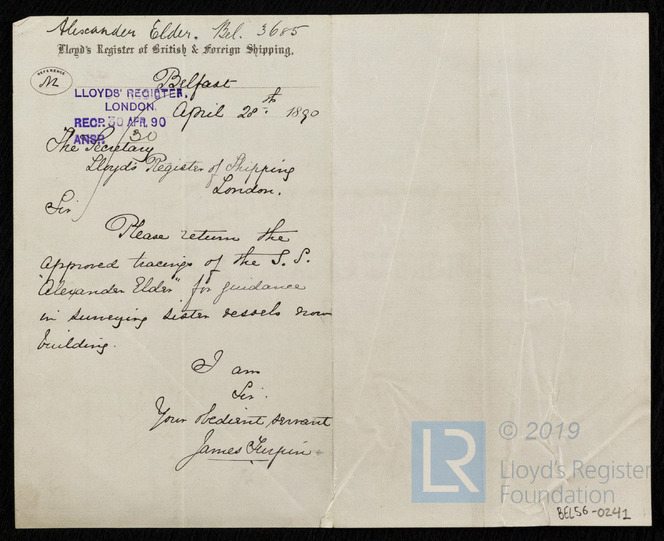 Alexander Elder. Bel. 3685
Lloyd's Register of British & Foreign Shipping,
REFERENCE
Belfast
LLOYDS' REGISTER,
LONDON.
April 28th 1890
RECD. 30 APR. 90
ANSD. 30
The Secretary
Lloyd's Register of Shipping
London.
Sir
Please return the
approved tracings of the S.S.
"Alexander Elder" for guidance
in surveying sister vessels now
building.
I am
Sir.
Your obedient servant
James Turpin
© 2019
LR
Lloyd's Register
Foundation
BEL56-0241